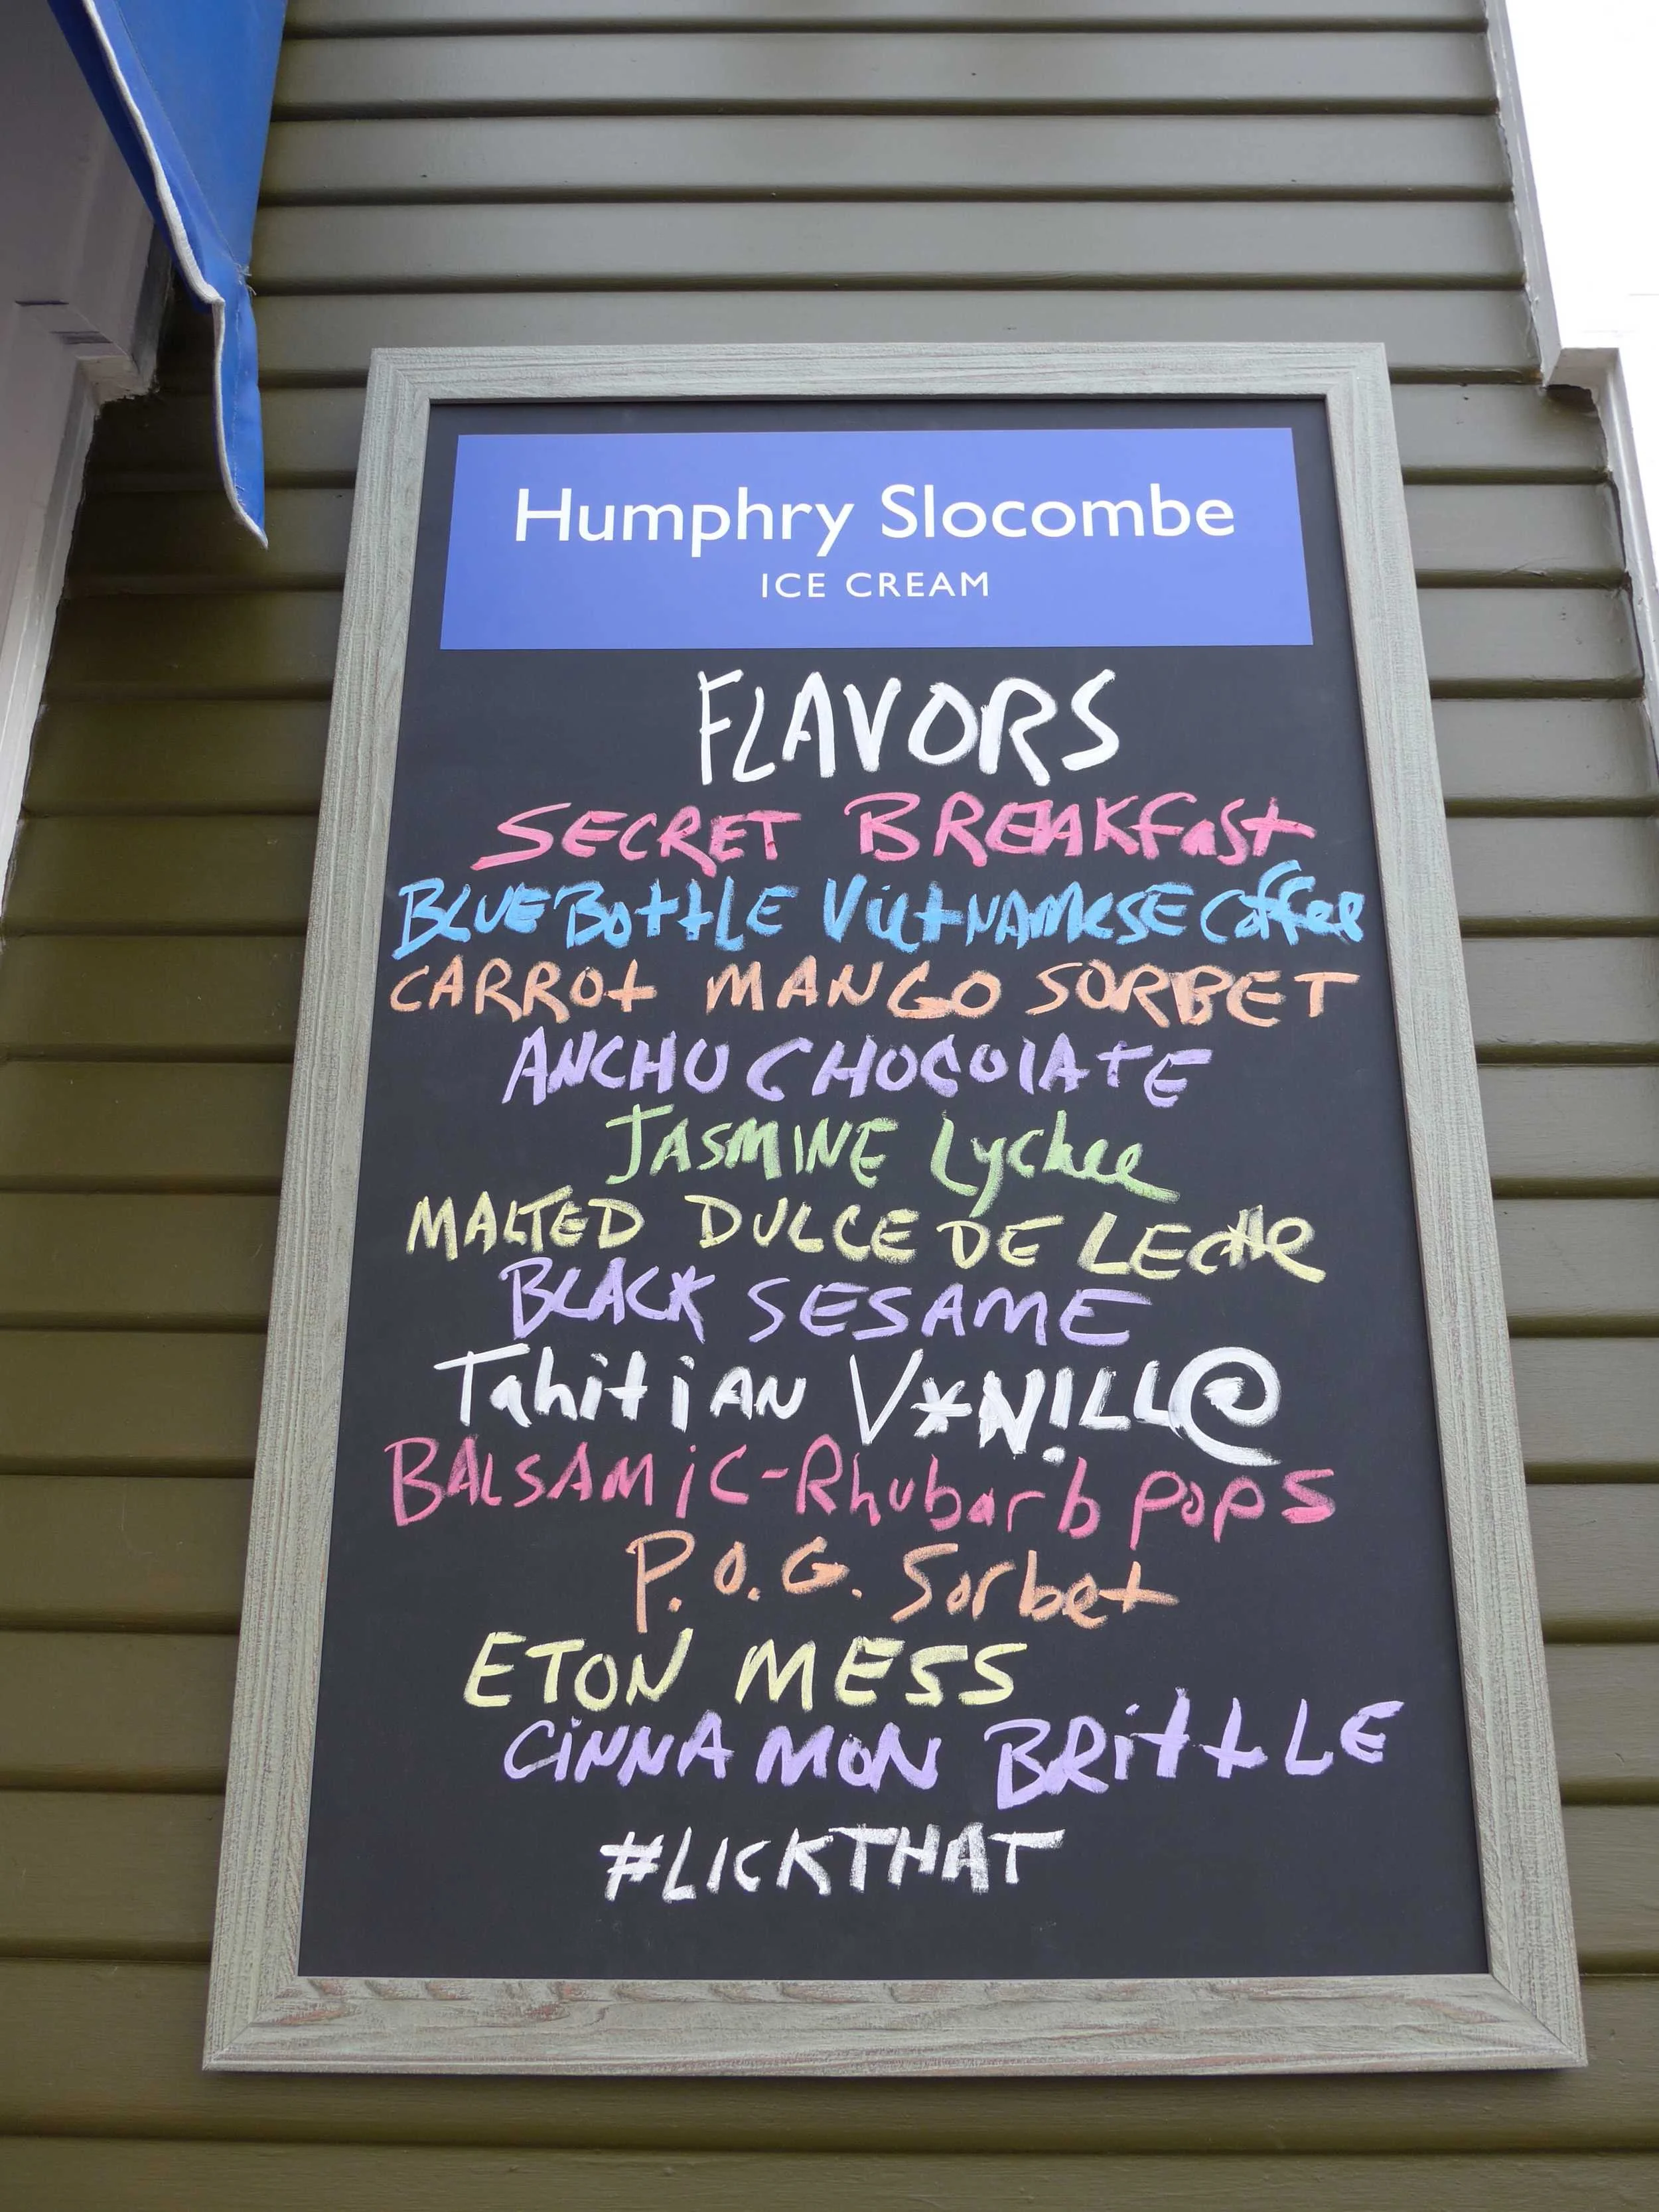 Humphry Slocombe
ICE CREAM
FLAVORS
SECRET BREAKfast
BLUE BottLE VietNAMESE Coffee
CARROt MANGO SORBET
ANCHO CHOCOlAtE
JASMINE Lychee
MALTED DULCE DE LEcHe
BLACK SESAME
TahitiAN V*N!LL@
BALSAMiC-Rhubarb pops
P.O.G. Sorbet
ETON MESS
CiNNAMON BRittLE
#LICKTHAT